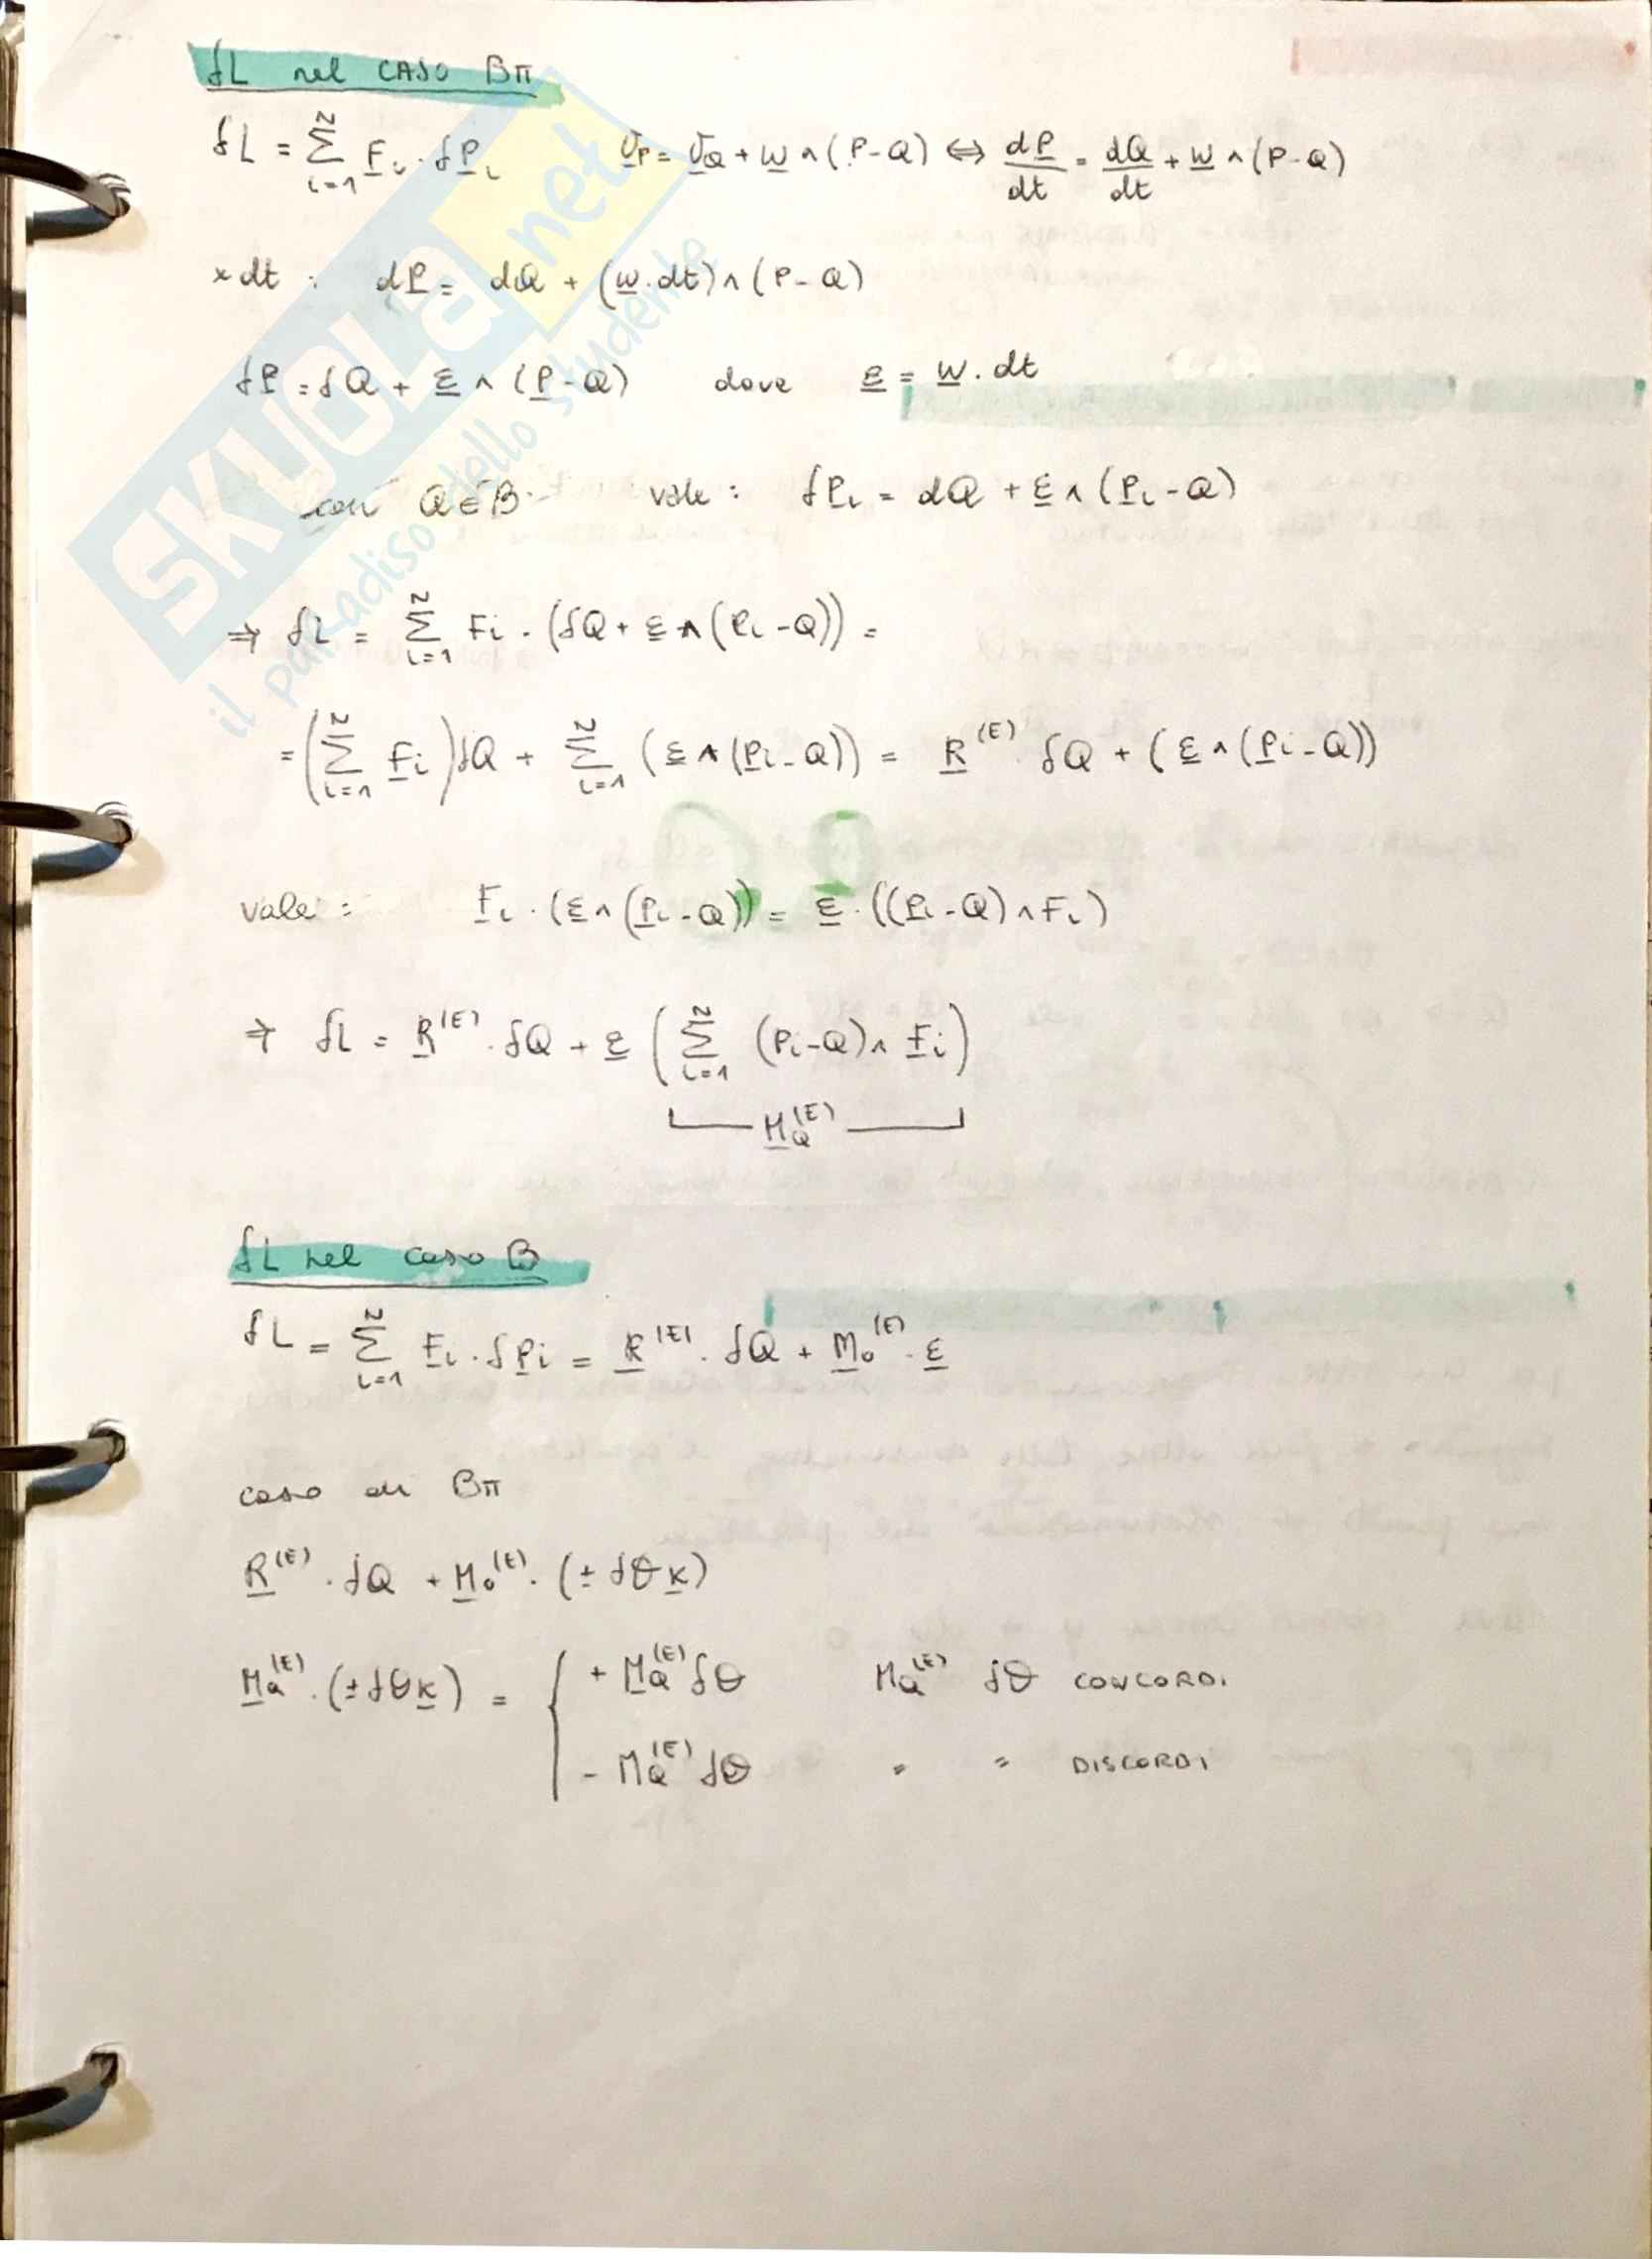 δL nel CASO Bπ
δL = Σ_{i=1}^{N} F_i · δP_i    v_P = v_Q + ω ∧ (P-Q) ⇔ dP/dt = dQ/dt + ω ∧ (P-Q)
x dt : dP = dQ + (ω · dt) ∧ (P-Q)
δP = δQ + ε ∧ (P-Q)    dove    ε = ω · dt
con Q ∈ B    vale : δP_i = dQ + ε ∧ (P_i - Q)
⇒ δL = Σ_{i=1}^{N} F_i · (δQ + ε ∧ (P_i - Q)) =
= (Σ_{i=1}^{N} F_i) δQ + Σ_{i=1}^{N} (ε ∧ (P_i - Q)) = R^{(E)} · δQ + (ε ∧ (P_i - Q))
vale : F_i · (ε ∧ (P_i - Q)) = ε · ((P_i - Q) ∧ F_i)
⇒ δL = R^{(E)} · δQ + ε (Σ_{i=1}^{N} (P_i - Q) ∧ F_i)
M_Q^{(E)}
δL nel caso B
δL = Σ_{i=1}^{N} F_i · δP_i = R^{(E)} · δQ + M_o^{(E)} · ε
caso di Bπ
R^{(E)} · δQ + M_o^{(E)} · (± δθ k)
M_Q^{(E)} · (± δθ k) = { + M_Q^{(E)} δθ    M_Q^{(E)} δθ CONCORDI
- M_Q^{(E)} δθ    " " DISCORDI
SKUOLA.net
il paradiso dello studente